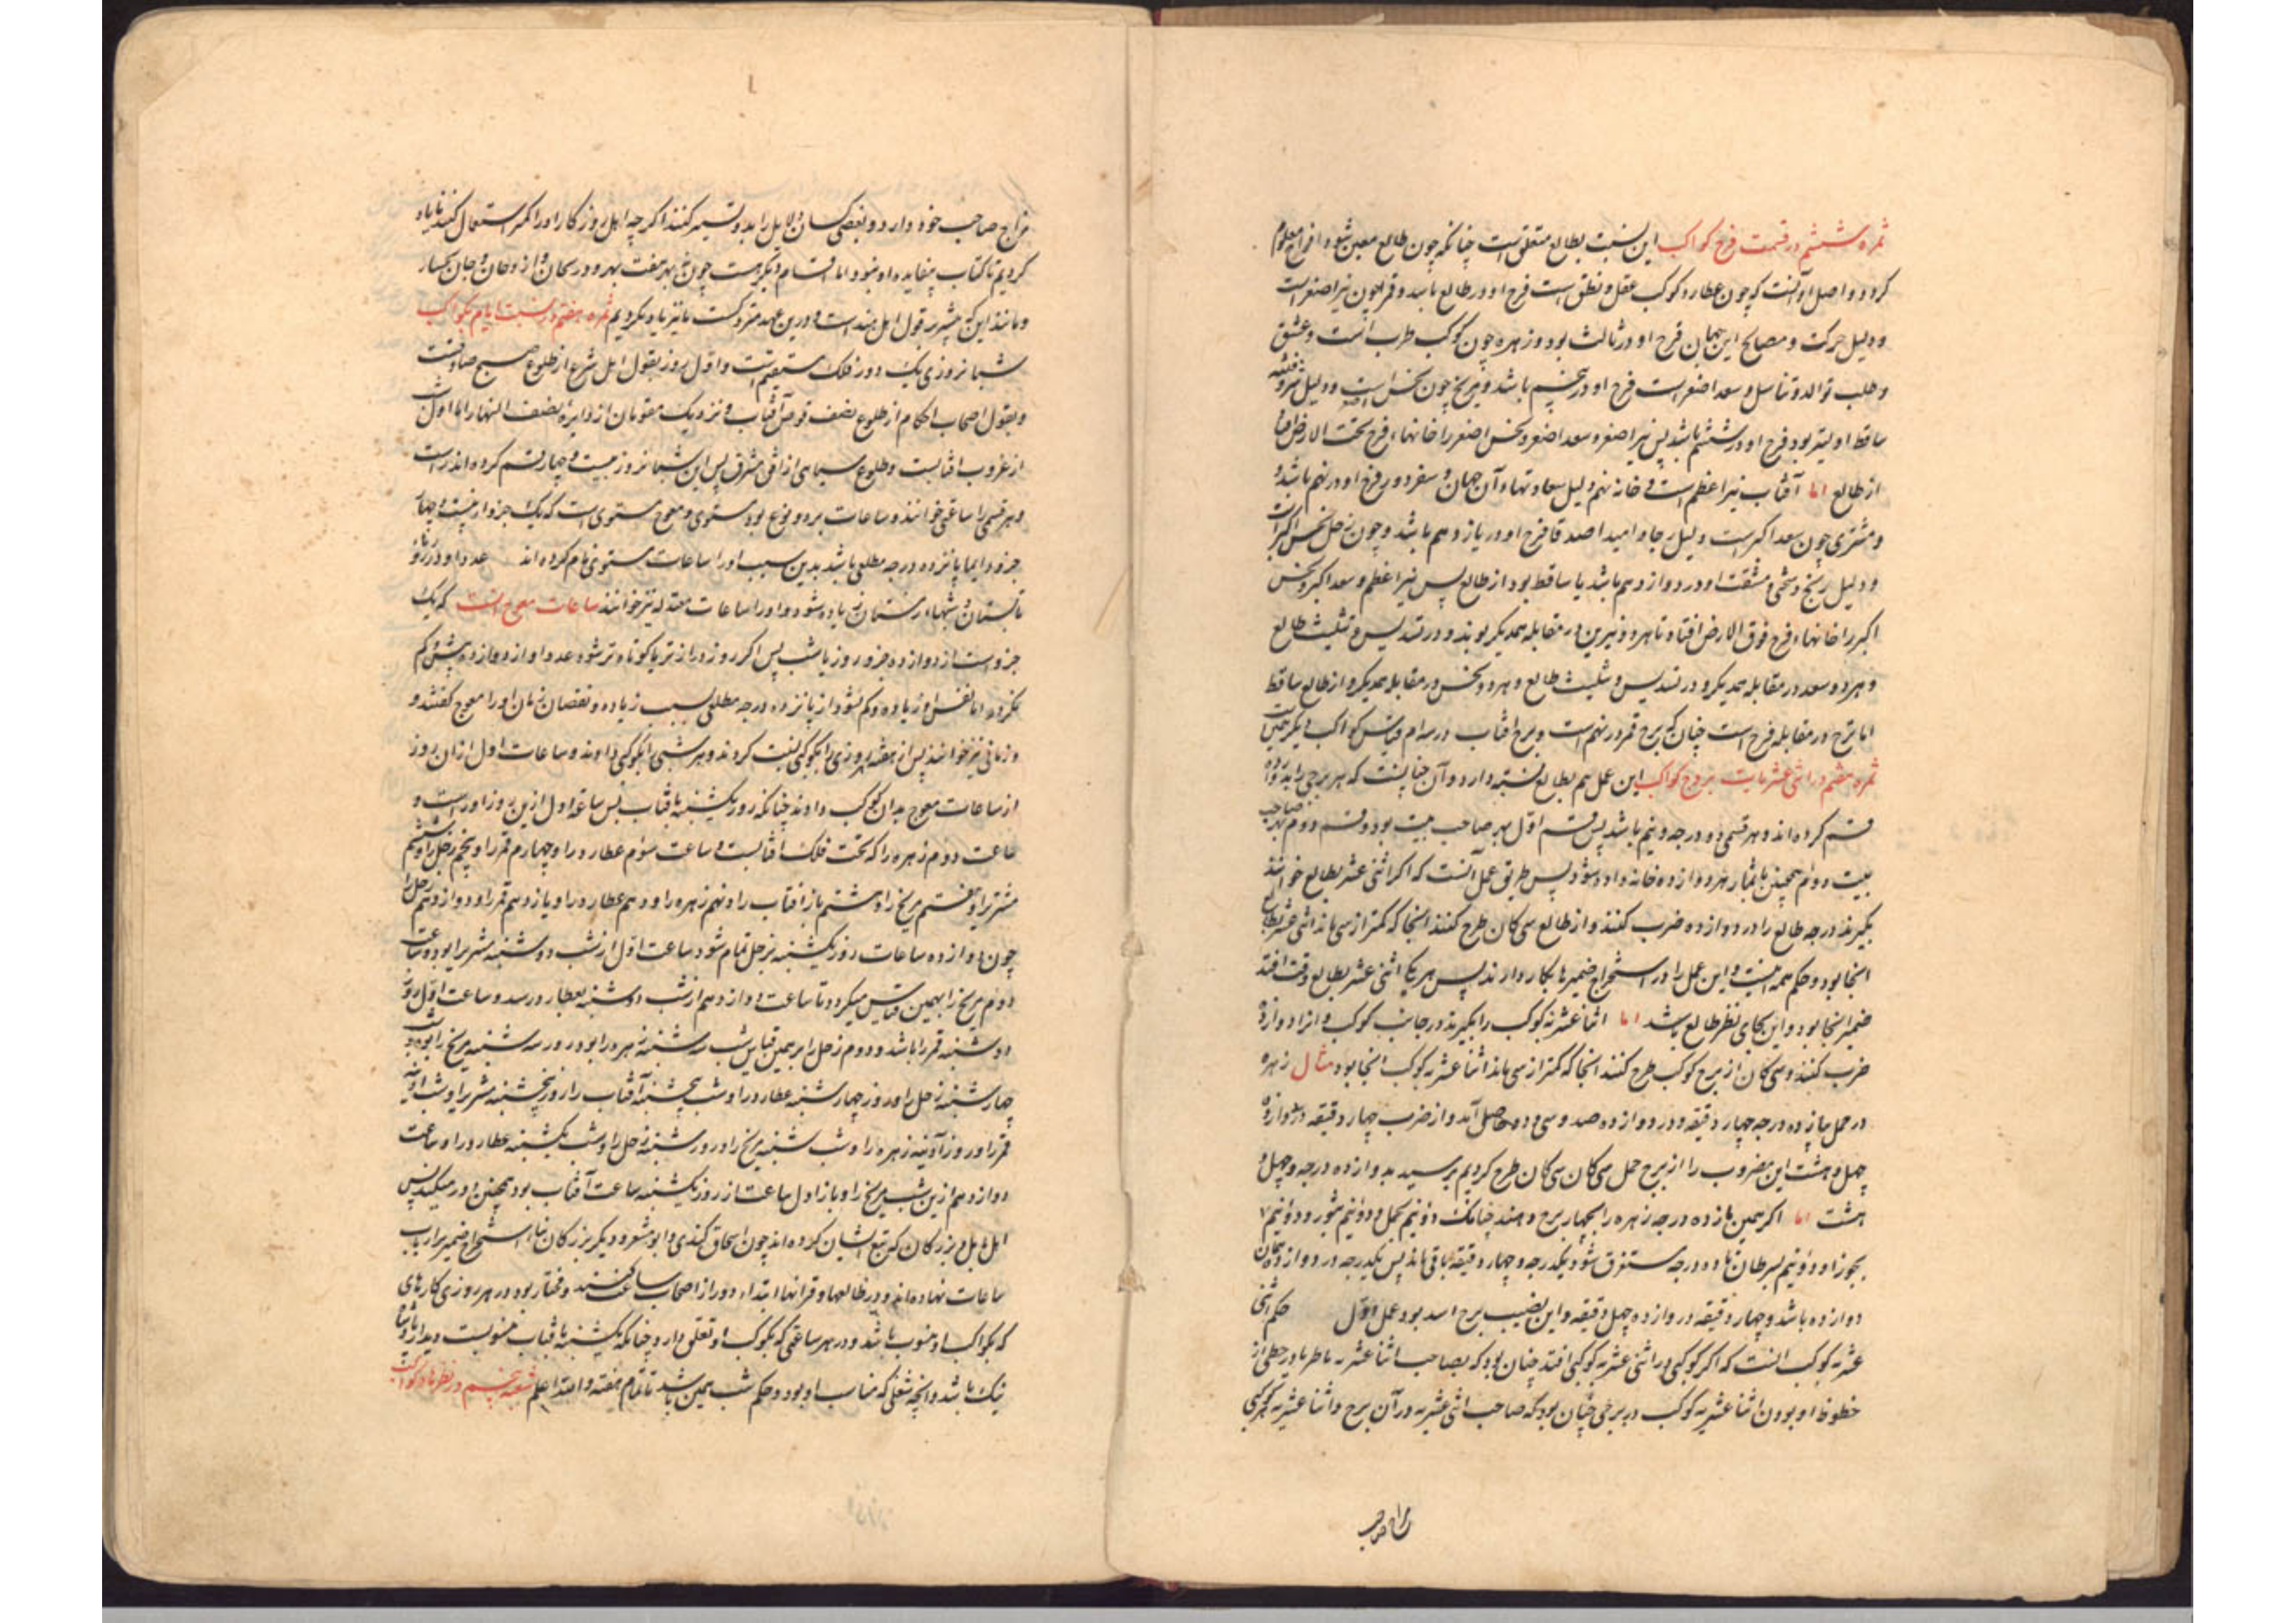 ثمره ششم در قسمت فرح کواکب این نسبت بطالع متعلق است چنانکه چون طالع معین شود افراح معلوم
کردد و اصل او آنست که چون عطارد کوکب عقل و نطق است فرح او در طالع باشد و قمر چون نیر اصغر است
و دلیل حرکت و مصالح این جهان فرح او در ثالث بود و زهره چون کوکب طرب است و عشق
و طلب توالد و تناسل و سعد اصغر است فرح او در پنجم باشد و مریخ چون نحس است و دلیل
ساقط اولیتر بود فرح او در ششم باشد پس نیر اصغر و سعد اصغر و نحس اصغر را خانهاء فرح تحت الارض
از طالع اما آفتاب نیر اعظم است و خانه نهم دلیل سعادتهاء آن جهان و سفر دور فرح او در نهم باشد و
و مشتری چون سعد اکبر است دلیل رجا و امید اصدقا فرح او در یازدهم باشد و چون زحل نحس اکبر است
و دلیل رنج و سختی و مشقت او در دوازدهم باشد یا ساقط بود از طالع پس نیر اعظم و سعد اکبر و نحس
اکبر را خانهاء فرح فوق الارض افتاد تا هر دو نیرین در مقابله همدیکر بوند و در تسدیس و تثلیث طالع
و هر دو سعد در مقابله همدیکر و در تسدیس و تثلیث طالع و هر دو نحس در مقابله همدیکر و از طالع ساقط
اما ترح در مقابله فرح است چنان که ترح قمر در نهم است و ترح افتاب در سوم و قیاس کواکب دیکر همین
ثمره هفتم در اثنی عشریات بروج کواکب این عمل هم بطالع نسبت دارد و آن چنانست که هر برجی را بدوازده
قسم کرده اند و هر قسمی دو درجه و نیم باشد پس قسم اول بهر صاحب بیت بود و قسم دوم بهر صاحب
بیت دوم همچنین تا بشمار هر دوازده خانه داده شود پس طریق عمل آنست که اکر اثنی عشر بطالع خواهند
بکیرند درجه طالع را در دوازده ضرب کنند و از طالع سی کان طرح کنند انجا که کمتر از سی ماند اثنی عشر بطالع
انجا بود و حکم همه اینست و این عمل را در استخراج ضمیرها بکار دارند پس هر یک اثنی عشر بطالع وقت افتد
ضمیر انجا بود و این بجای نظر طالع باشد اما اثنا عشریه کوکب را بکیرند درجات کوکب و انرا در دوازده
ضرب کنند و سی کان از برج کوکب طرح کنند انجا که کمتر از سی ماند اثنا عشریه کوکب انجا بود مثال زهره
در حمل یازده درجه چهار دقیقه و در دوازده صد و سی و دو حاصل آمد و از ضرب چهار دقیقه در دوازده
چهل و هشت این مضروب را از برج حمل سی کان سی کان طرح کردیم برسید بدوازده درجه و چهل و
هشت اما اکر همین یازده درجه زهره را بچهار برج دهند چنانک دونیم بحمل و دونیم بثور و دونیم
بجوزا و دونیم بسرطان تا ده درجه مستغرق شود یکدرجه و چهار دقیقه باقی ماند پس یکدرجه در دوازده همان
دوازده باشد و چهار دقیقه در دوازده چهل دقیقه و این نصیب برج اسد بود عمل اول حکم اثنی
عشریه کوکب انست که اکر کوکبی در اثنی عشریه کوکبی افتد چنان بود که بصاحب اثنا عشریه ناظر یا در حظی از
حظوظ او بودن اثنا عشریه کوکب در برجی چنان بود که صاحب اثنی عشریه در آن برج و اثنا عشریه هر کوکبی
مزاج صاحب
مزاج صاحب خود دارد و بعضی کسان دلایل را بدو تسییر کنند اکر چه اهل روزکار او را کمتر استعمال کنند یاد
کردیم تا کتاب بیفایده او نبود اما اقسام دیکر هست چون نه بهر هفت بهر و دریجان و ازدجان و جان بختار
و مانند این که بیشتر بقول اهل هند است و درین عهد متروکست تا نیز یاد نکردیم ثمره هفتم در نسبت ایام بکواکب
شبانروزی یک دور فلک مستقیم است و اول روز بقول اهل شرع از طلوع صبح صادقست
و بقول اصحاب احکام از طلوع نصف قرص آفتاب و نزدیک مقومان از دایره نصف النهار اما اول شب
از غروب افتابست و طلوع سیاهی از افق مشرق پس این شبانروز بیست و چهار قسم کرده اند راست
و هر قسمی را ساعتی خوانند و ساعات بر دو نوع بود مستوی و معوج مستوی است که یک جزو از بیست و چهار
جزو دایما پانزده درجه مطلعی باشد بدین سبب او را ساعات مستوی نام کرده اند عدد او در روز
تابستان و شبهاء زمستان زیاده شود و او را ساعات معتدله نیز خوانند ساعات معوج انست که یک
جزو است از دوازده جزو روز یا شب پس اکر روز درازتر یا کوتاه تر شود عدد او از دوازده بیش و کم
نکردد اما نفس او زیاده و کم شود از پانزده درجه مطلعی بسبب زیاده و نقصان زمان او را معوج کفتند و
و زمانی نیز خوانند پس از هفته هر روزی را بکوکبی نسبت کردند و هر شبی را بکوکبی دادند و ساعات اول از ان روز
از ساعات معوج بدان کوکب دادند چنانکه روز یکشنبه بافتاب پس ساعة اول ازین روز او راست و
ساعت دوم زهره را که تحت فلک افتابست و ساعت سوم عطارد را و چهارم قمر را و پنجم زحل را و ششم
مشتری را و هفتم مریخ را و هشتم باز افتاب را و نهم زهره را و دهم عطارد را و یازدهم قمر را و دوازدهم زحل را
چون دوازده ساعات روز یکشنبه بزحل تمام شود ساعت اول از شب دوشنبه مشتری را بود و ساعت
دوم مریخ را بهمین قیاس میکرد تا ساعت دوازدهم از شب دوشنبه بعطارد رسد و ساعت اول روز
دوشنبه قمر را باشد و دوم زحل را بر همین قیاس شب سه شنبه زهره را بود و روز سه شنبه مریخ را بود و شب
چهارشنبه زحل را و روز چهارشنبه عطارد را و شب پنجشنبه آفتاب را و روز پنجشنبه مشتری را و شب آدینه
قمر را و روز آدینه زهره را و شب شنبه مریخ را و روز شنبه زحل را و شب یکشنبه عطارد را و ساعت
دوازدهم ازین شب مریخ را و باز اول ساعت از روز یکشنبه ساعت آفتاب بود همچنین دور میکند پس
اهل بابل و بزرکان که تتبع ایشان کرده اند چون اسحاق کندی و ابو معشر و دیکر بزرکان بنا استخراج ضمیر بر ارباب
ساعات نهاده اند و در طالعها و قرانها ابتداء دور از اصحاب ساعت کفتند و مختار بود در هر روزی کارهای
که بکواکب او منسوب باشد و در هر ساعتی که بکوکب او تعلق دارد چنانکه یکشنبه بافتاب منسوبست دیدار پادشاه
نیک باشد و انچه شغلی که مناسب او بود و حکم شب همین باشد تا تمام هفته والله اعلم شعبه پنجم در نظرهاء کواکب